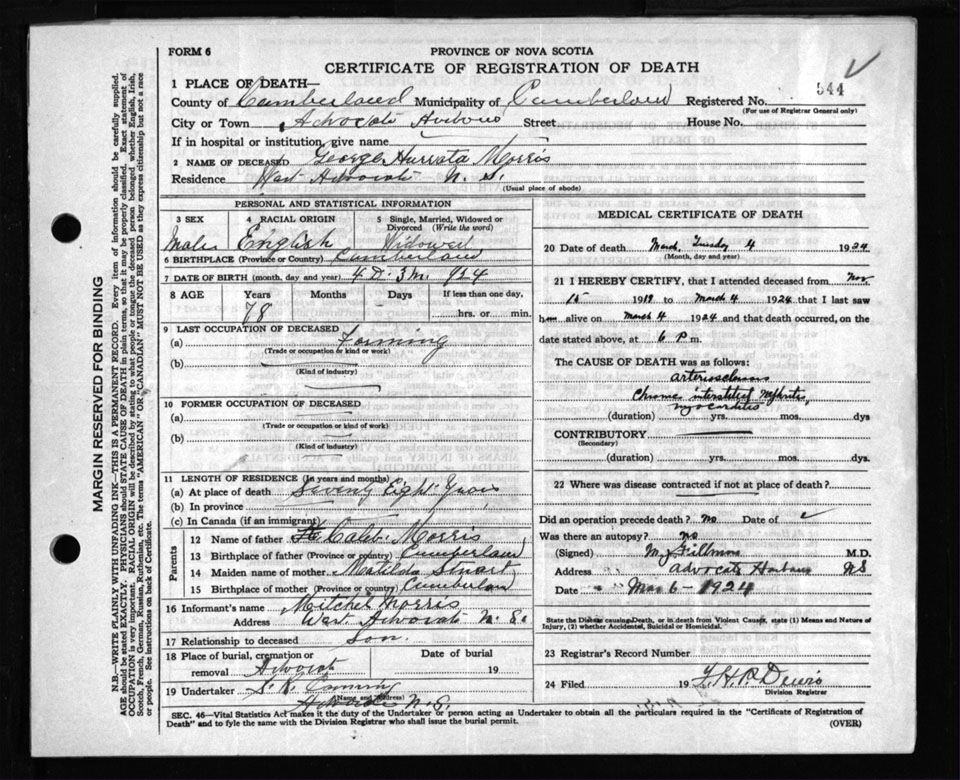 FORM 6
PROVINCE OF NOVA SCOTIA
CERTIFICATE OF REGISTRATION OF DEATH
544
1 PLACE OF DEATH—
County of Cumberland Municipality of Cumberland Registered No.
(For use of Registrar General only)
City or Town Advocate Street: House No.
If in hospital or institution, give name
2 NAME OF DECEASED George Morris
Residence West Advocate N. S.
(Usual place of abode)
PERSONAL AND STATISTICAL INFORMATION
3 SEX
Male
4 RACIAL ORIGIN
English
5 Single, Married, Widowed or Divorced (Write the word)
Widowed
6 BIRTHPLACE (Province or Country) Cumberland
7 DATE OF BIRTH (month, day and year) 4 D. 3 M. 924
8 AGE Years Months Days If less than one day,
78 – – hrs. or min.
9 LAST OCCUPATION OF DECEASED
(a) Farming
(Trade or occupation or kind or work)
(b)
(Kind of industry)
10 FORMER OCCUPATION OF DECEASED
(a)
(Trade or occupation or kind of work)
(b)
(Kind of industry)
11 LENGTH OF RESIDENCE (In years and months)
(a) At place of death Seventy Eight Years
(b) In province
(c) In Canada (if an immigrant)
Parents
12 Name of father Caleb Morris
13 Birthplace of father (Province or country) Cumberland
14 Maiden name of mother Matilda Stuart
15 Birthplace of mother (Province or country) Cumberland
16 Informant's name Mitchel Morris
Address West Advocate N. S.
17 Relationship to deceased Son.
18 Place of burial, cremation or removal Advocate
Date of burial 19
19 Undertaker
(Name and Address)
Advocate N. S.
MEDICAL CERTIFICATE OF DEATH
20 Date of death March, Tuesday 4 1924
(Month, day and year)
21 I HEREBY CERTIFY, that I attended deceased from Nov
15 1919 to March 4 1924 that I last saw
him alive on March 4 1924 and that death occurred, on
date stated above, at 6 P. m.
The CAUSE OF DEATH was as follows:
Arteriosclerosis
Chronic interstitial Nephritis,
Myocarditis
(duration) yrs. mos. dys
CONTRIBUTORY
(Secondary)
(duration) yrs. mos. dys.
22 Where was disease contracted if not at place of death?
Did an operation precede death? no Date of
Was there an autopsy? no
(Signed) Fillmore M.D.
Address Advocate Harbour NS
Date Mar 6 – 1924
State the Disease causing Death, or in death from Violent Causes, state (1) Means and Nature of Injury, (2) whether Accidental, Suicidal or Homicidal.
23 Registrar's Record Number
24 Filed 19
Division Registrar
SEC. 46—Vital Statistics Act makes it the duty of the Undertaker or person acting as Undertaker to obtain all the particulars required in the "Certificate of Registration of
Death" and to fyle the same with the Division Registrar who shall issue the burial permit.
(OVER)
MARGIN RESERVED FOR BINDING
N.B.—WRITE PLAINLY WITH UNFADING INK—THIS IS A PERMANENT RECORD. Every item of information should be carefully supplied.
AGE should be stated EXACTLY. PHYSICIANS should STATE CAUSE OF DEATH in plain terms, so that it may be properly classified. Exact statement of
OCCUPATION is very important. RACIAL ORIGIN will be described by stating to what people or tongue the deceased person belonged, whether English, Irish,
Scotch, French, German, Russian, Ruthenian, etc. The terms "AMERICAN" OR "CANADIAN" MUST NOT BE USED as they express citizenship but not a race
or people. See instructions on back of Certificate.